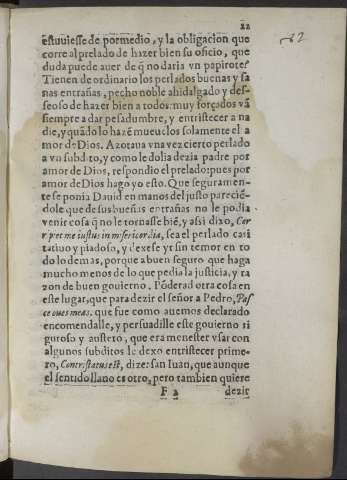 22
62
estuuiesse de pormedio, y la obligacion que
corre al prelado de hazer bien su oficio, que
duda puede auer de q̃ no daria vn papirote?
Tienen de ordinario los perlados buenas y sa
nas entrañas, pecho noble ahidalgado y des-
seoso de hazer bien a todos: muy forçados vã
siempre a dar pesadumbre, y entristecer a na
die, y quãdo lo hazẽ mueuelos solamente el a
mor de Dios. Açotaua vna vez cierto perlado
a vn subdito, y como le dolia dezia padre por
amor de Dios, respondio el prelado: pues por
amor de Dios hago yo esto. Que seguramen-
te se ponia Dauid en manos del justo pareciẽ-
dole que de sus buenas entrañas no le podia
venir cosa q̃ no le tornasse biẽ, y assi dixo, Cor
ripiet me iustus in misericordia, sea el perlado cari
tatiuo y piadoso, y dexese yr sin temor en to
do lo demas, porque a buen seguro que haga
mucho menos de lo que pedia la justicia, y ra
zon de buen gouierno. Põderad otra cosa en
este lugar, que para dezir el señor a Pedro, Pas
ce oues meas, que fue como auemos declarado
encomendalle, y persuadille este gouierno ri
guroso y austero, que era menester vsar con
algunos subditos le dexo entristecer prime-
ro, Contristatus est, dize san Iuan, que aunque
el sentido llano es otro, pero tambien quiere
F 2 dezir